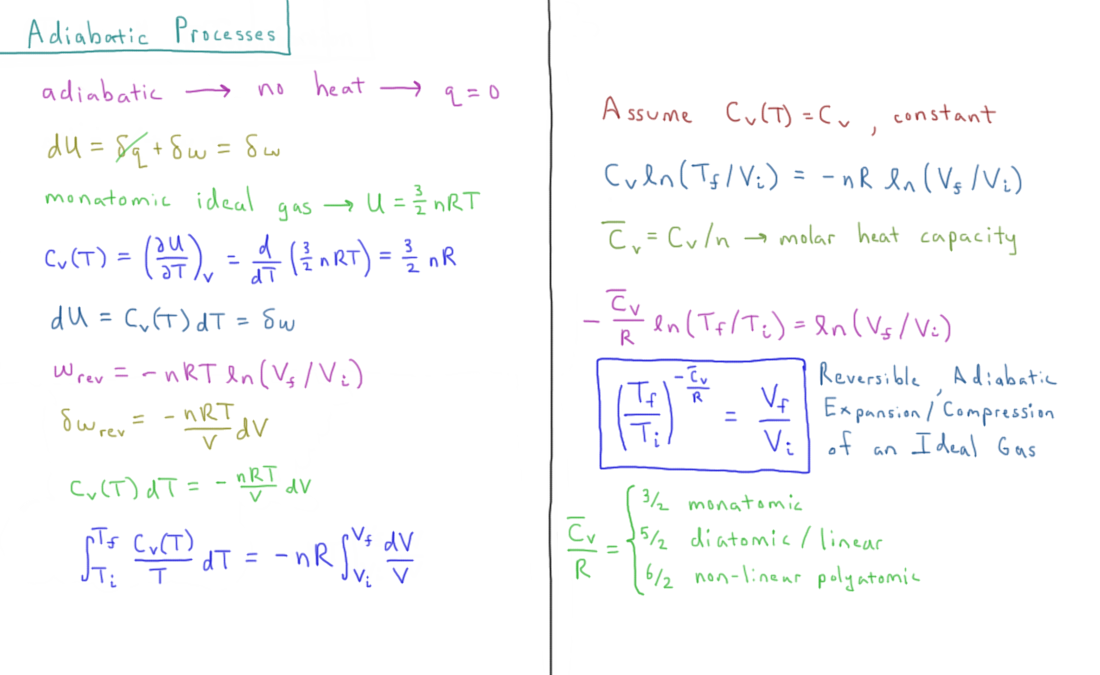 Adiabatic Processes
adiabatic → no heat → q = 0
dU = δq + δw = δw
monatomic ideal gas → U = 3/2 nRT
Cv(T) = (∂U/∂T)v = d/dT (3/2 nRT) = 3/2 nR
dU = Cv(T) dT = δw
wrev = -nRT ln(Vf/Vi)
δwrev = - nRT/V dV
Cv(T) dT = - nRT/V dV
∫Ti^Tf Cv(T)/T dT = -nR ∫Vi^Vf dV/V
Assume Cv(T) = Cv, constant
Cv ln(Tf/Vi) = -nR ln(Vf/Vi)
C̅v = Cv/n → molar heat capacity
- C̅v/R ln(Tf/Ti) = ln(Vf/Vi)
(Tf/Ti)^(-C̅v/R) = Vf/Vi
Reversible, Adiabatic
Expansion/Compression
of an Ideal Gas
C̅v/R = {
3/2 monatomic
5/2 diatomic/linear
6/2 non-linear polyatomic